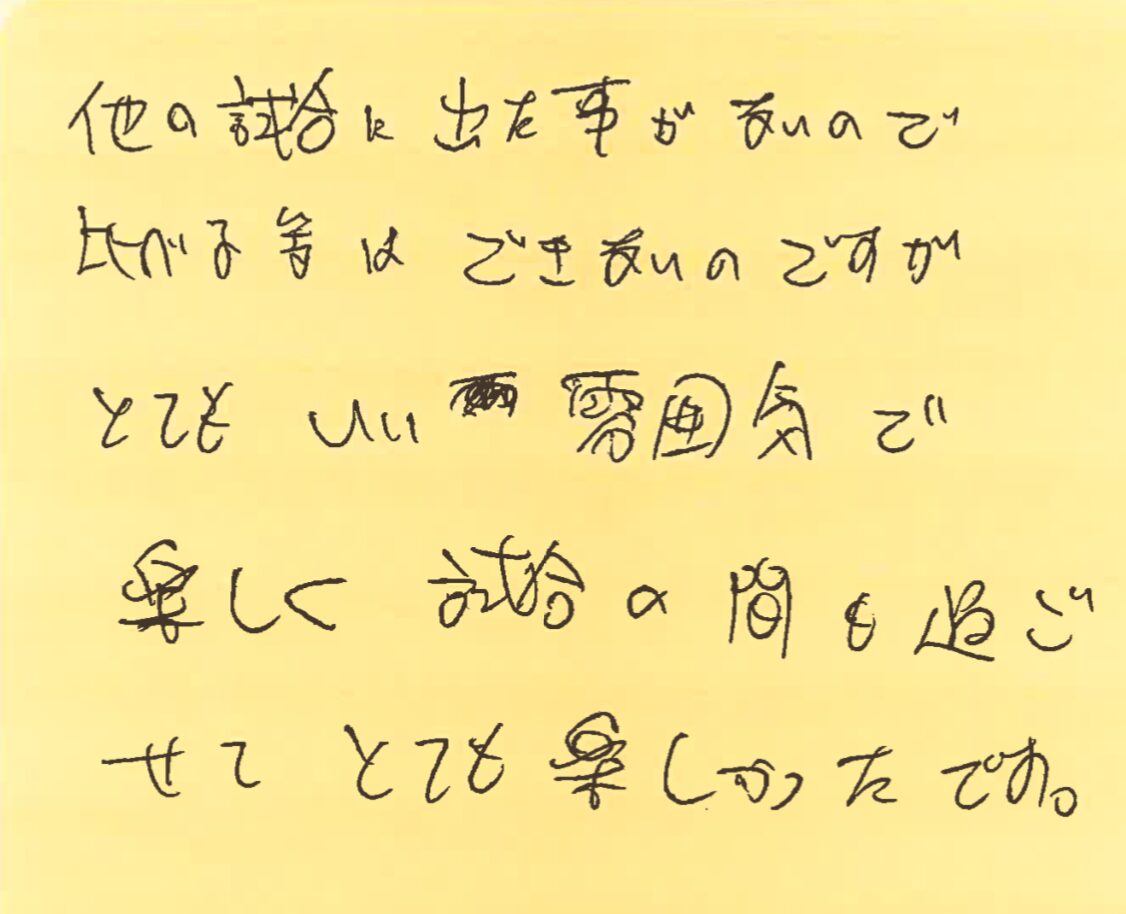 他の試合に出た事がないので
比べる事は できないのですが
とても いい 雰囲気で
楽しく 試合の間も過ご
せて とても楽しかったです。